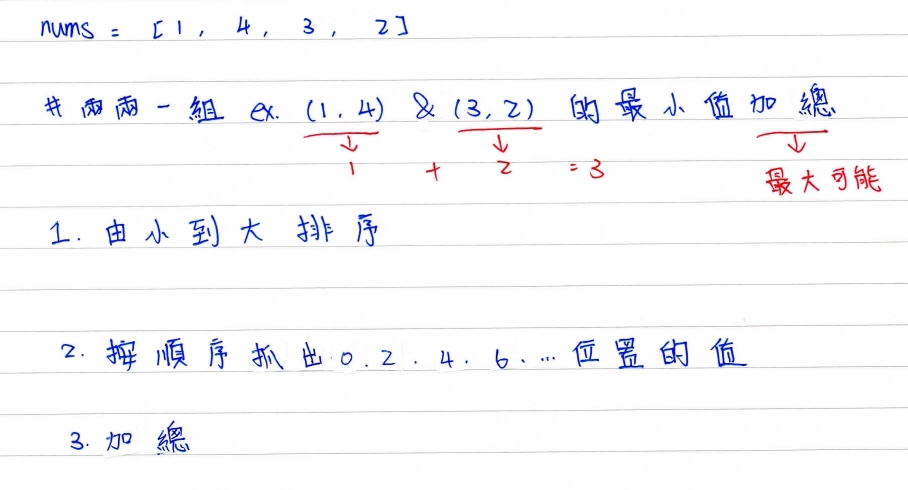 nums = [1, 4, 3, 2]
# 兩兩一組 ex. (1, 4) & (3, 2) 的最小值加總
↓ ↓ ↓
1 + 2 = 3 最大可能
1. 由小到大 排序
2. 按順序抓出 0. 2. 4. 6. ... 位置的值
3. 加總